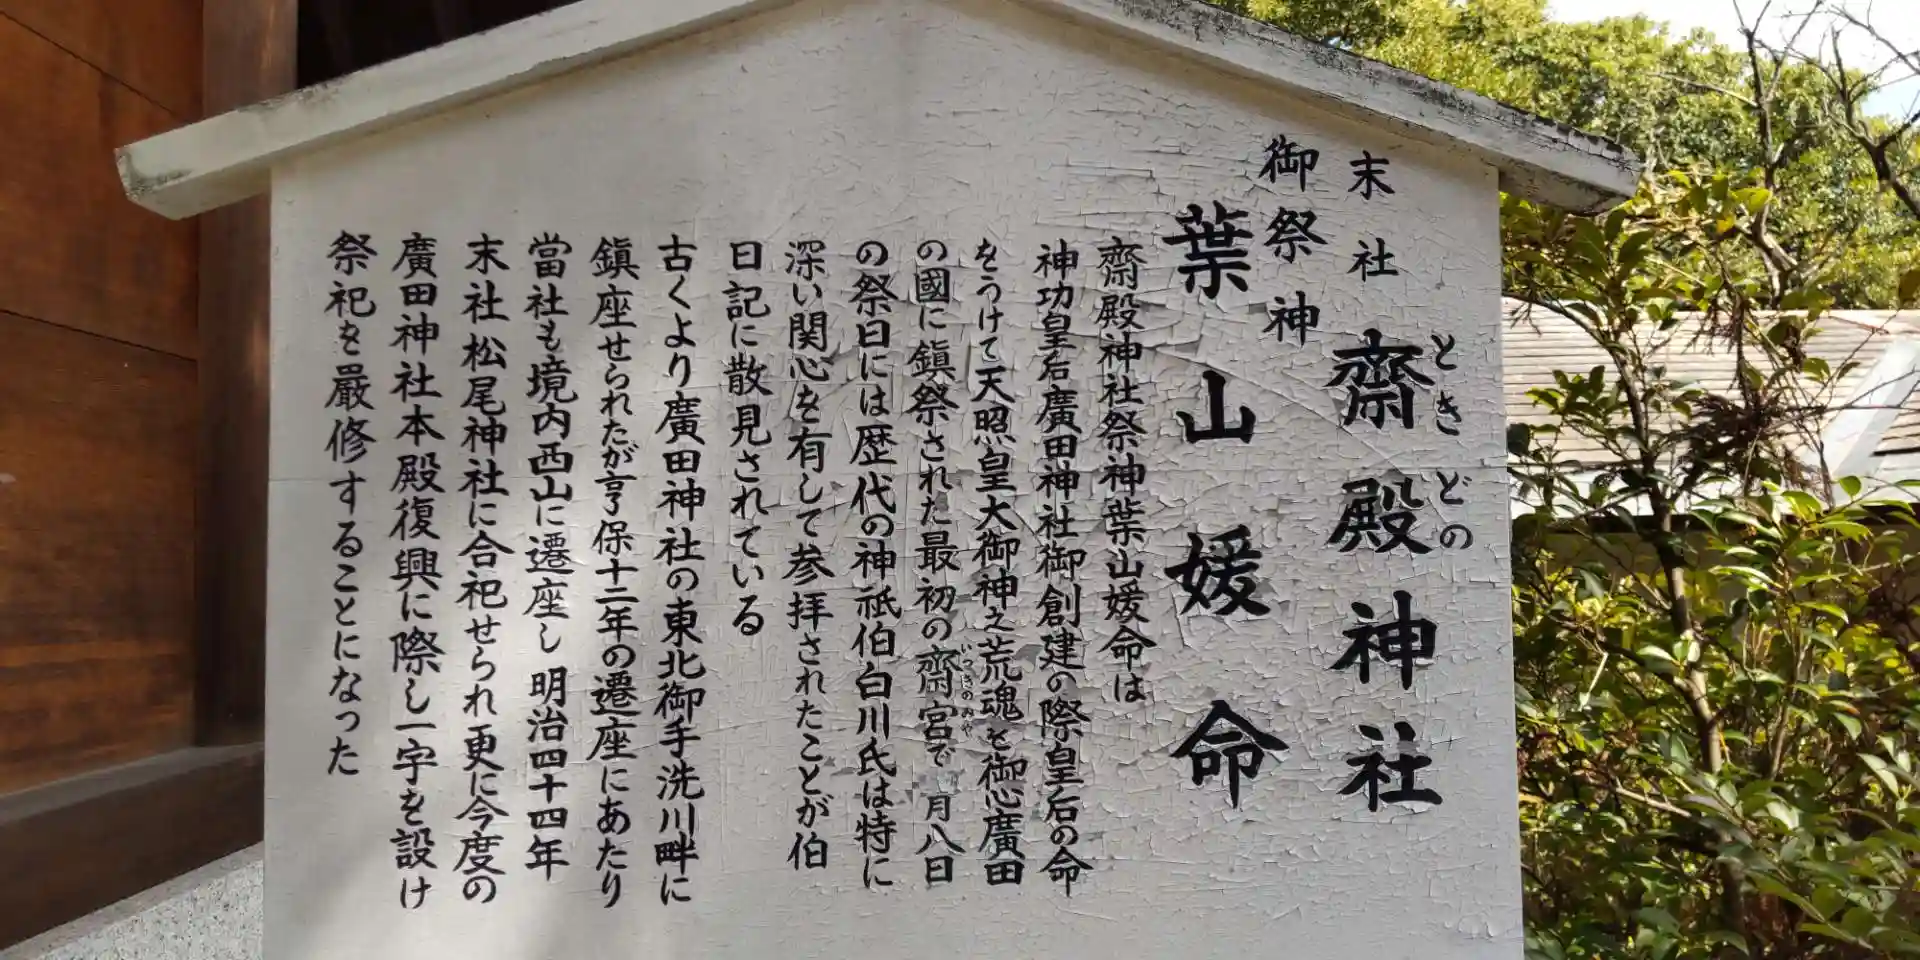 末社 齋殿神社
ときどの
御祭神
葉山媛命
齋殿神社祭神葉山媛命は
神功皇后廣田神社御創建の際皇后の命
をうけて天照皇大御神之荒魂を御心廣田
の國に鎮祭された最初の齋宮で 月八日
いつきのみや
の祭日には歴代の神祇伯白川氏は特に
深い関心を有して参拝されたことが伯
日記に散見されている
古くより廣田神社の東北御手洗川畔に
鎮座せられたが享保十二年の遷座にあたり
當社も境内西山に遷座し 明治四十四年
末社松尾神社に合祀せられ更に今度の
廣田神社本殿復興に際し一宇を設け
祭祀を厳修することになった